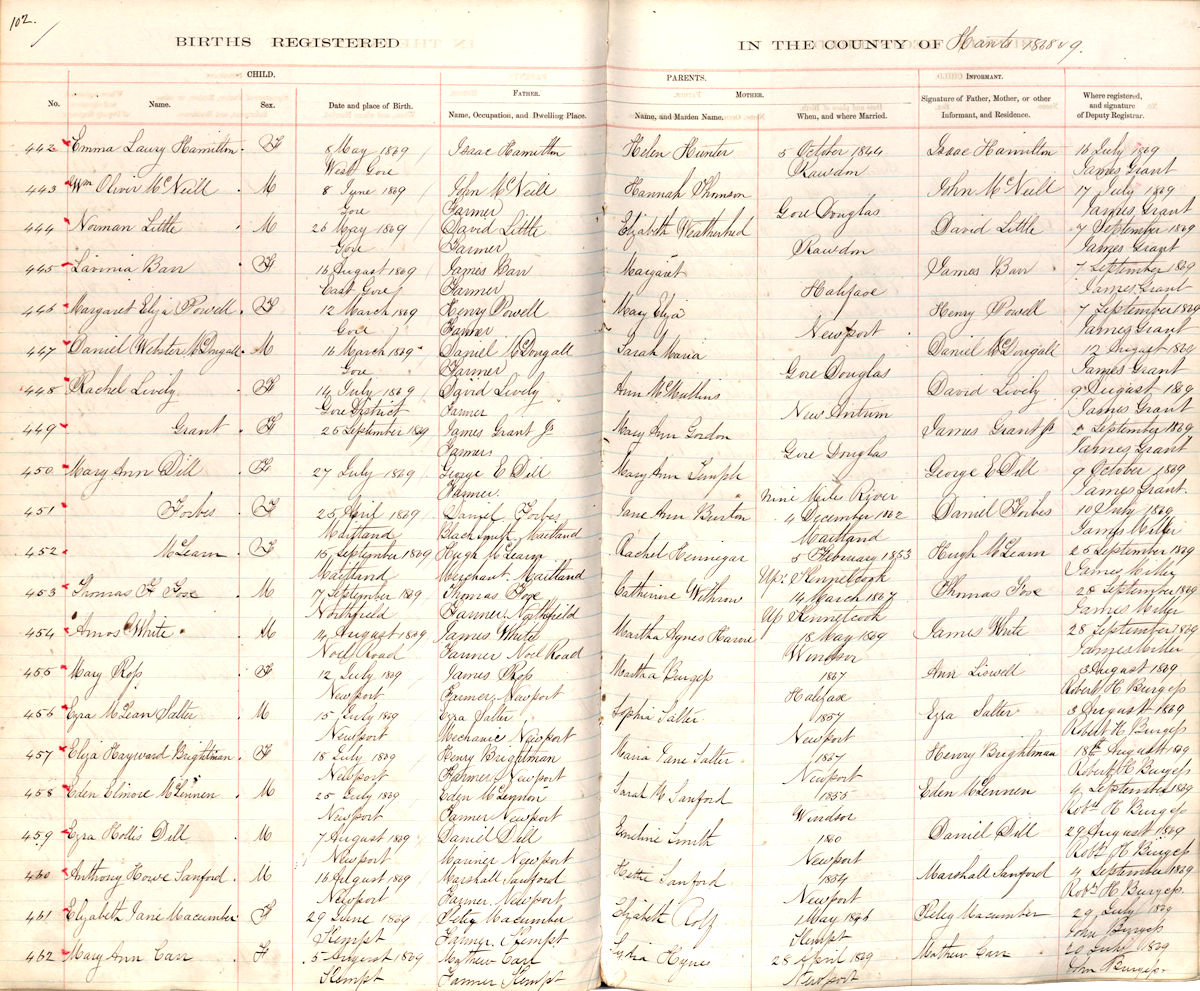 102.
BIRTHS REGISTERED IN THE COUNTY OF Hants 1868 & 9.
CHILD. PARENTS. INFORMANT.
FATHER. MOTHER.
No. Name. Sex. Date and place of Birth. Name, Occupation, and Dwelling Place. Name, and Maiden Name. When, and where Married. Signature of Father, Mother, or other Informant, and Residence. Where registered, and signature of Deputy Registrar.
442 Emma Laury Hamilton F 8 May 1869 Isaac Hamilton Helen Hunter 5 October 1844 Isaac Hamilton 16 July 1869
West Gore Rawdon James Grant
443 Wm Oliver McNeill M 8 June 1869 John McNeill Hannah Thomson John McNeill 17 July 1869
Gore Farmer Gore Douglas James Grant
444 Norman Little M 26 May 1869 David Little Elizabeth Weatherhed David Little 7 September 1869
Gore Farmer Rawdon James Grant
445 Lavinia Barr F 16 August 1869 James Barr Margaret James Barr 7 September 1869
East Gore Farmer Halifax James Grant
446 Margaret Eliza Powell F 12 March 1869 Henry Powell Mary Eliza Henry Powell 7 September 1869
Gore Farmer Newport James Grant
447 Daniel Webster McDougall M 16 March 1869 Daniel McDougall Sarah Maria Daniel McDougall 12 August 1869
Gore Farmer Gore Douglas James Grant
448 Rachel Lively F 14 July 1869 David Lively Ann McMullins David Lively 9 August 1869
Gore District Farmer New Antrum James Grant
449 Grant F 26 September 1869 James Grant Jr Mary Ann Gordon James Grant Jr September 1869
Farmer Gore Douglas James Grant
450 Mary Ann Dill F 27 July 1869 George E Dill Mary Ann Temple George E Dill 9 October 1869
Farmer. Nine Mile River James Grant
451 Forbes F 25 April 1869 Daniel Forbes Jane Ann Burton 4 December 1862 Daniel Forbes 10 July 1869
Maitland Blacksmith, Maitland Maitland James Miller
452 McLearn F 16 September 1869 Hugh McLearn Rachel Hennigar 5 February 1853 Hugh McLearn 25 September 1869
Maitland Merchant, Maitland Up. Kennetcook James Miller
453 Thomas F Fox M 17 September 1869 Thomas Fox Catherine Withrow 14 March 1867 Thomas Fox 28 September 1869
Northfield Farmer, Northfield Up Kennetcook James Miller
454 Amos White M 14 August 1869 James White Martha Agnes 18 May 1869 James White 28 September 1869
Noel Road Farmer Noel Road Windsor James Miller
455 Mary Ross F 12 July 1869 James Ross Martha Burgess 1867 Ann 3 August 1869
Newport Farmer, Newport Halifax Robert H Burgess
456 Ezra McLean Salter M 15 July 1869 Ezra Salter Sophia Salter 1857 Ezra Salter 3 August 1869
Newport Mechanic Newport Newport Robert H Burgess
457 Eliza Hayward Brightman F 18 July 1869 Henry Brightman Maria Jane Salter 1857 Henry Brightman 18th August 1869
Newport Farmer, Newport Newport Robert H Burgess
458 Eden Elmore McLennen M 25 July 1869 Eden McLennon Sarah M Sanford 1855 Eden McLennen 4 September 1869
Newport Farmer Newport Windsor Robt H Burgess
459 Ezra Hollis Dill M 7 August 1869 Daniel Dill Emeline Smith 1860 Daniel Dill 29 August 1869
Newport Mariner Newport Newport Robt H Burgess
460 Anthony Howe Sanford M 16 August 1869 Marshall Sanford Sanford 1854 Marshall Sanford 4 September 1869
Newport Farmer, Newport Newport Robt H Burgess
461 Elizabeth Jane Macumber F 29 June 1869 Macumber Elizabeth Rolf May Macumber 29 July 1869
Kempt Farmer, Kempt Kempt John Burgess
462 Mary Ann Carr F 5 August 1869 Mathew Carr Lydia 28 April 1869 Mathew Carr 1869
Kempt Farmer Kempt Newport John Burgess